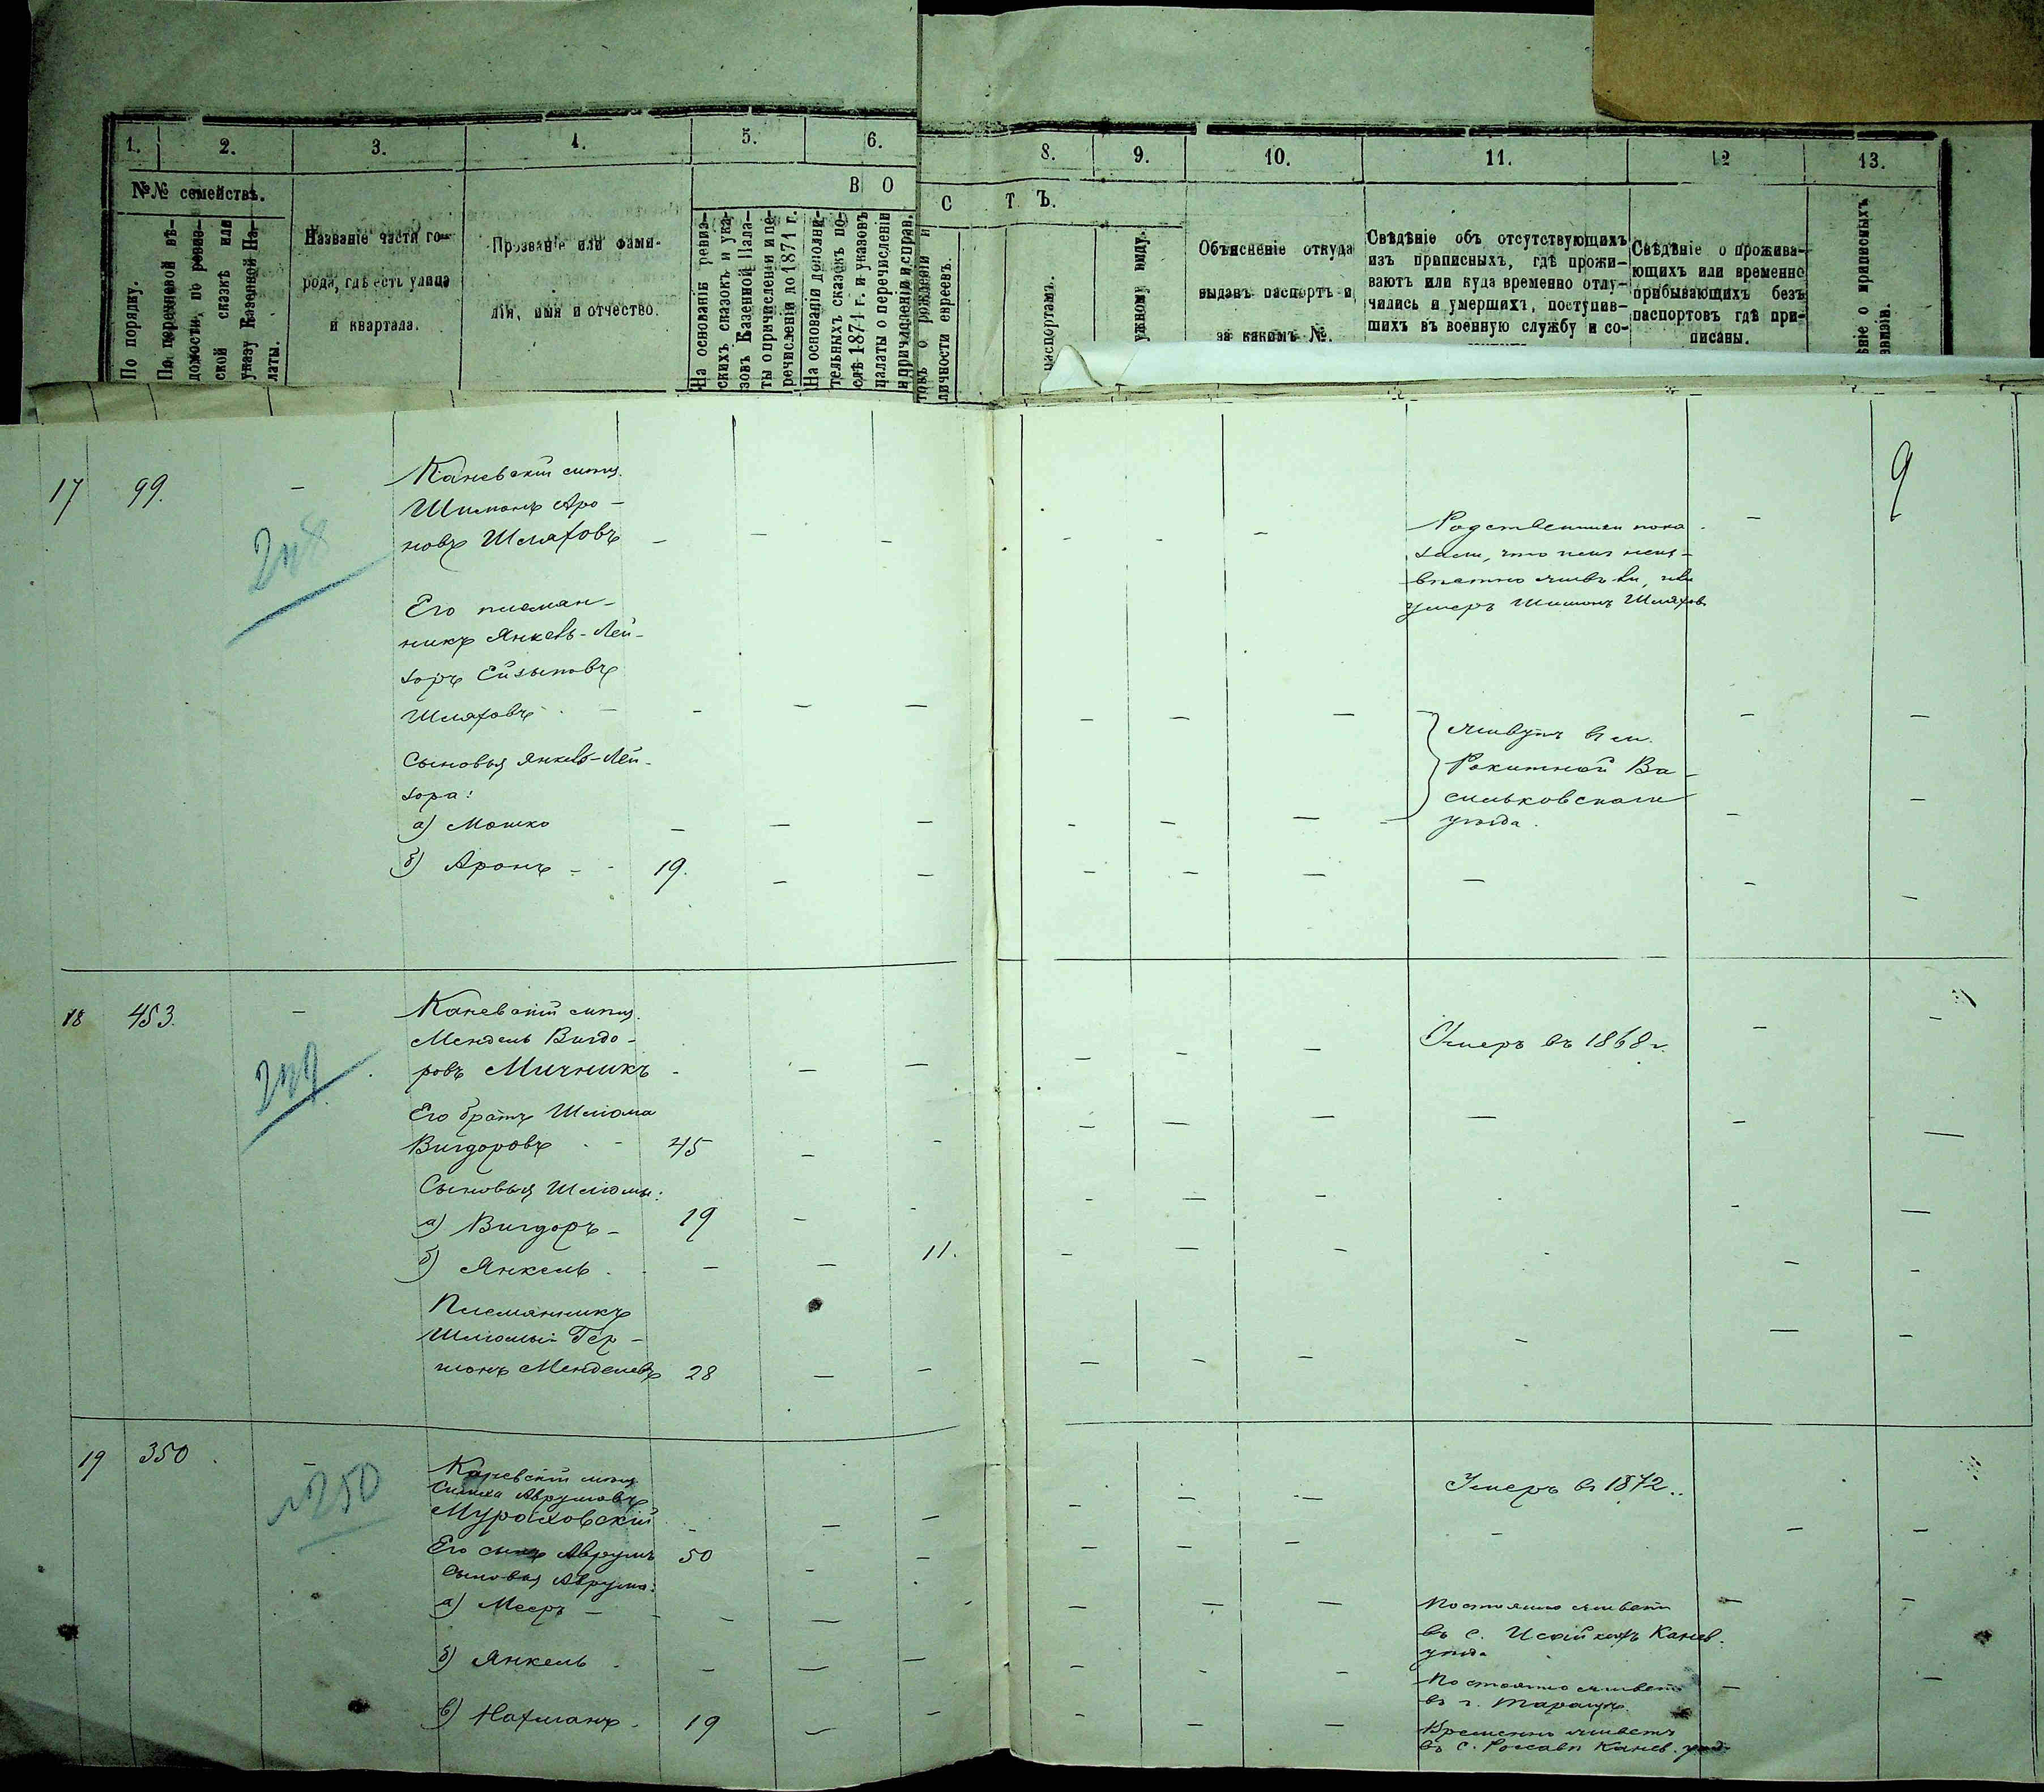 1. 2. 3. 4. 5. 6. 8. 9. 10. 11. 12 13.
№№ семействъ.
В О
С Т Ъ.
По порядку.
По перечневой вѣ-
домости, по ревиз-
ской сказкѣ или
указу Казенной Па-
латы.
Названіе части го-
рода, гдѣ есть улица
и квартала.
Прозваніе или фами-
лія, имя и отчество.
На основаніи ревиз-
скихъ сказокъ и ука-
зовъ Казенной Пала-
ты о причисленіи и пе-
речисленіи до 1871 г.
На основаніи дополни-
тельныхъ сказокъ по-
слѣ 1871 г. и указовъ
палаты о перечисленіи
и причисленіи и справ.
товъ о рожденіи и
личности евреевъ.
паспортамъ.
ужному виду.
Объясненіе откуда
выданъ паспортъ и
за какимъ №.
Свѣдѣніе объ отсутствующихъ
изъ приписныхъ, гдѣ прожи-
ваютъ или куда временно отлу-
чились и умершихъ, поступив-
шихъ въ военную службу и со-
Свѣдѣніе о прожива-
ющихъ или временно
прибывающихъ безъ
паспортовъ гдѣ при-
писаны.
ѣніе о приписныхъ
9
17 99. —
248
Каневскій
Шимонъ Аро-
новъ Шляховъ — — —
Родственники пока-
зали, что имъ неиз-
вѣстно живъ ли, или
умеръ Шимонъ Шляховъ
Его племян-
никъ Янкель-Лей-
зоръ Ейзыковъ
Шляховъ — — — —
Сыновья Янкеля-Лей-
зора:
а) Мошко — — —
Живутъ въ м.
Рокитной Ва-
сильковскаго
уѣзда.
б) Аронъ - 19. — —
18 453. —
249
Каневскій
Мендель Вигдо-
ровъ Мичникъ - — —
Умеръ въ 1868 г.
Его братъ Шлiома
Вигдоровъ - 45 — -
Сыновья Шлiомы:
а) Вигдоръ - 19 — -
б) Янкель - — — 11.
Племянникъ
Шлiомы Гер-
шонъ Менделевъ 28 — —
19 350. —
№250
Каневскій
Симха Аврумовъ
Мураховскій - — —
Умеръ въ 1872..
Его сынъ Аврумъ 50 - —
Сыновья Аврума:
а) Мееръ — - — —
Постоянно живетъ
въ с. Исайкахъ Канев.
уѣзда
б) Янкель - — — —
Постоянно живетъ
въ г. Таращѣ.
в) Нахманъ - 19 — —
Временно живетъ
въ с. Россавѣ Канев. уѣзд.